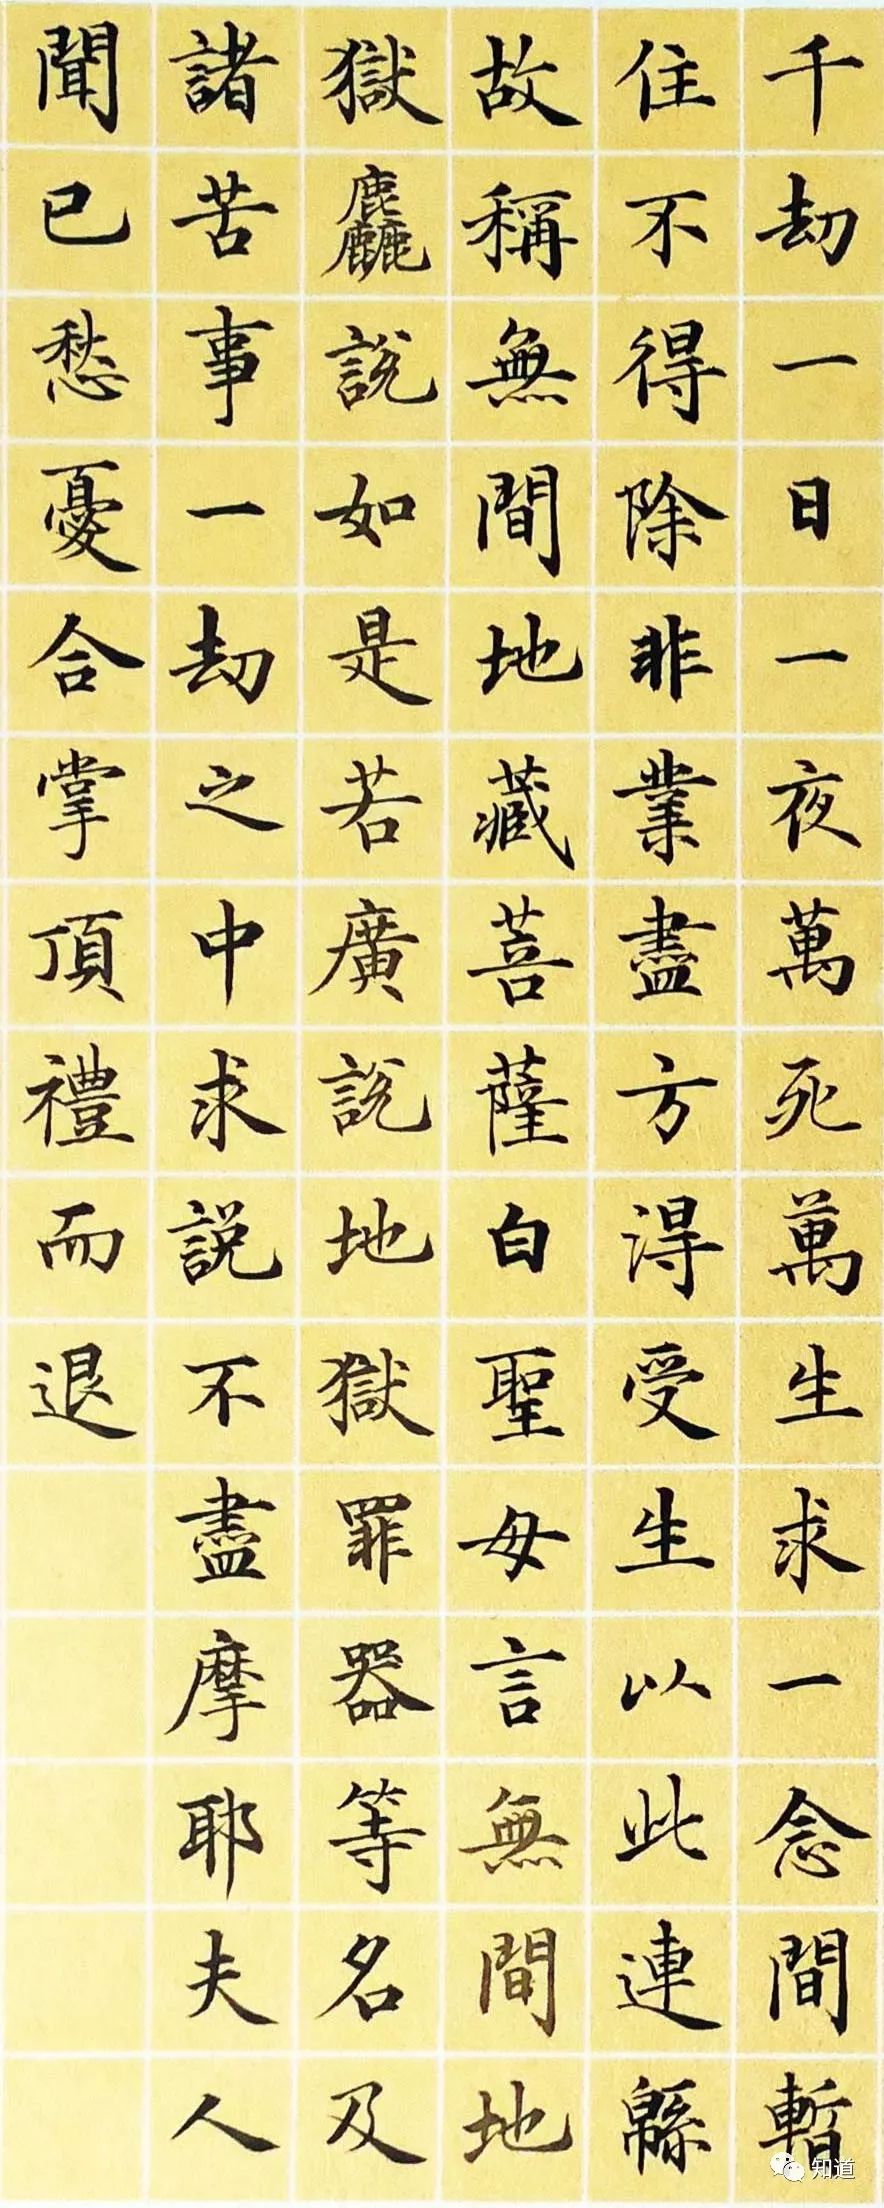 千劫一日一夜萬死萬生求一念間暫
住不得除非業盡方得受生以此連緜
故稱無間地藏菩薩白聖母言無間地
獄麤說如是若廣說地獄罪器等名及
諸苦事一劫之中求説不盡摩耶夫人
聞已愁憂合掌頂禮而退
知道